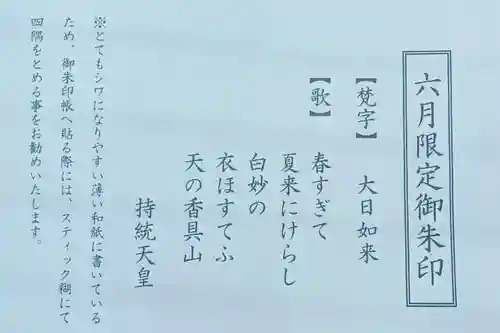 六月限定御朱印
【梵字】 大日如来
【歌】 春すぎて
夏来にけらし
白妙の
衣ほすてふ
天の香具山
持統天皇
※とてもシワになりやすい薄い和紙に書いている
ため、御朱印帳へ貼る際には、スティック糊にて
四隅をとめる事をお勧めいたします。